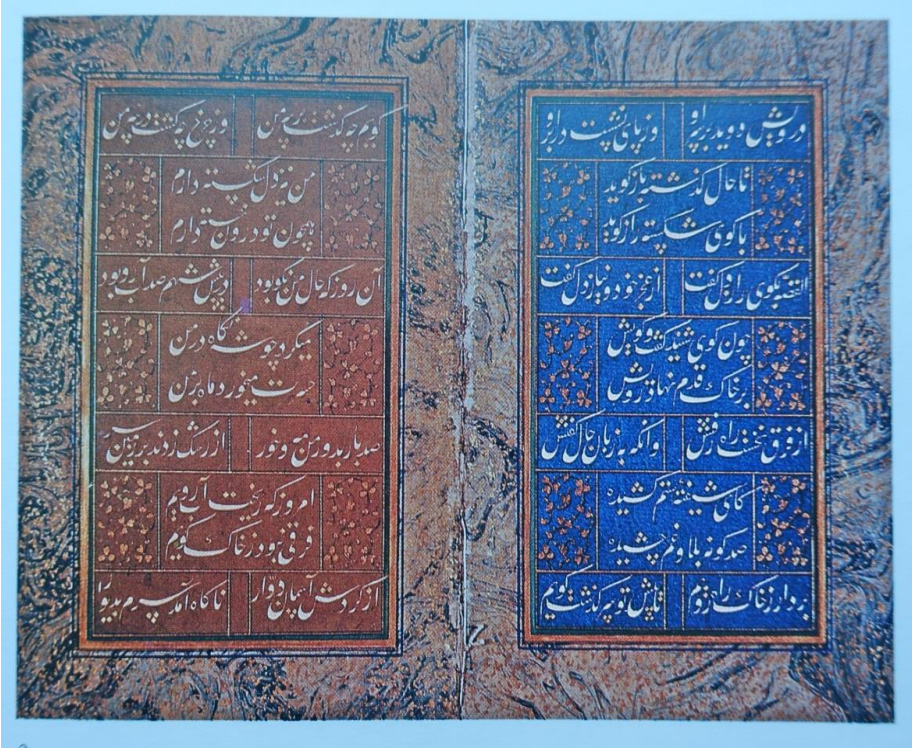 درویش دوید بر او وز پای نشست در بر او
تا حال گذشته باز گوید
با گوی شکسته راز گوید
القصه بگوی راز دل گفت از عجز خود و نیاز دل گفت
چون گوی شنید گفت و گویش
بر خاک قدم نهاد رویش
از فرق نخست راه رفتش وانگه به زبان حال گفتش
کای شیفته ستم کشیده
صد گونه بلا و غم چشیده
بردار ز خاک راه رویم تا پیش تو سرگذشت گویم
گویم چه گذشت بر سر من وز چرخ چه گشت من
من نیز دل شکسته دارم
همچون تو درون خسته دارم
آن روز که حال من نکو بود در پیش شهم صد آب رو بود
میکرد چو شه نگاه در من
حسرت میخورد ماه بر من
صد بار بدور من مه و خور از رشک زدند بر زمین سر
امروز که ریخت آب رویم
فرقی نبود ز خاک کویم
از گردش آسمان دوار ناگاه آمد سرم بدیوار